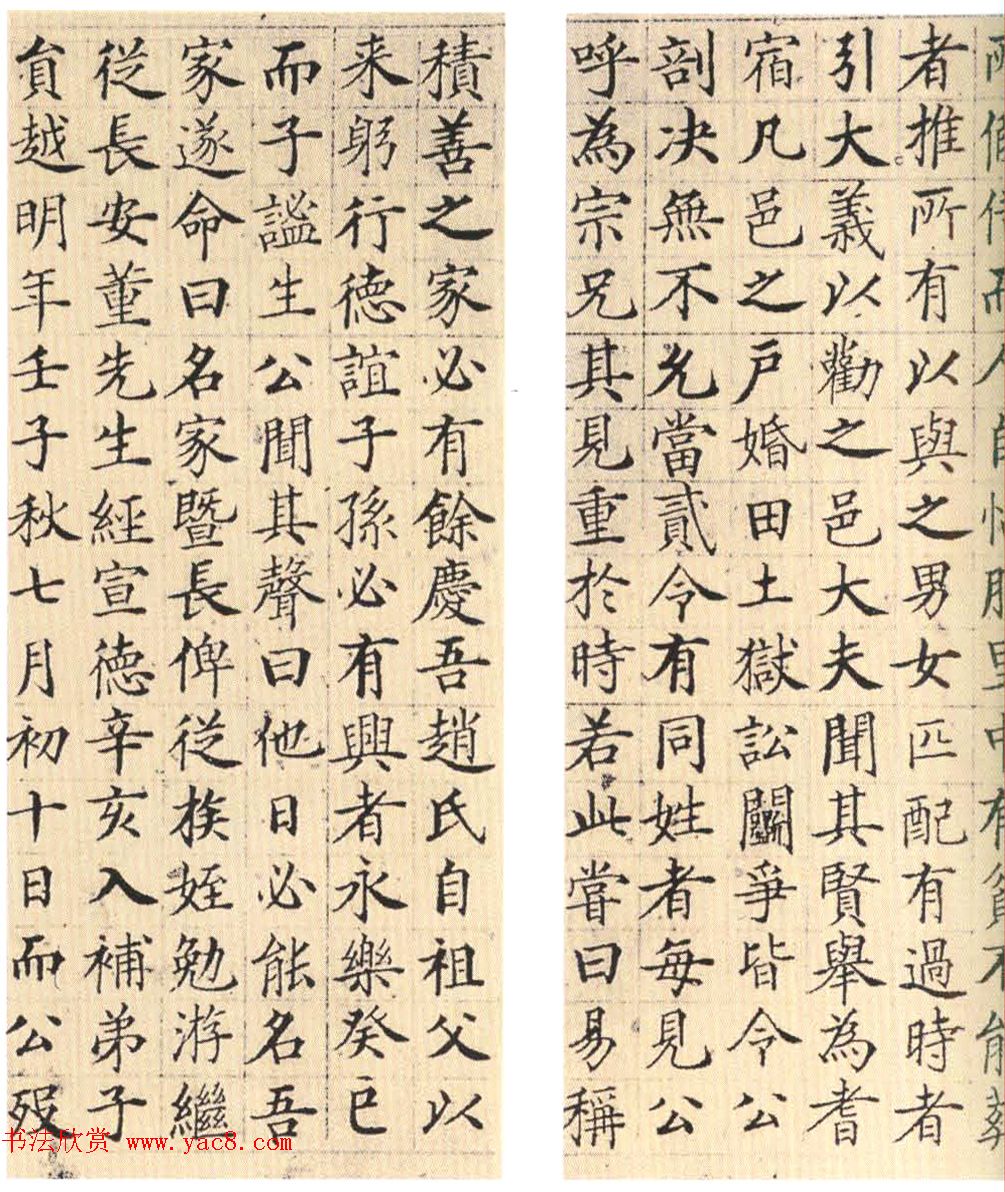 人
者推所有以與之男女匹配有過時者
引大義以勸之邑大夫聞其賢舉為耆
宿凡邑之戶婚田土獄訟鬭爭皆令公
剖决無不允當貳令有同姓者每見公
呼為宗兄其見重於時若此嘗曰易稱
積善之家必有餘慶吾趙氏自祖父以
来躬行德誼子孫必有興者永樂癸巳
而子謐生公聞其聲曰他日必能名吾
家遂命曰名家暨長俾從族姪勉游繼
從長安董先生經宣德辛亥入補弟子
貟越明年壬子秋七月初十日而公歿
书法欣赏 www.yac8.com